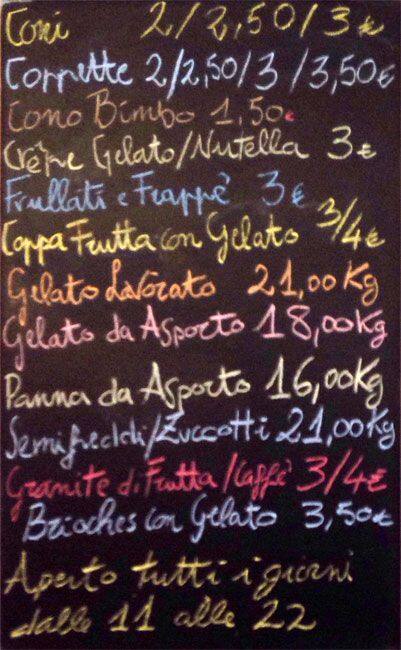 Coni 2/2,50/3€
Coppette 2/2,50/3/3,50€
Cono Bimbo 1,50€
Crêpe Gelato/Nutella 3€
Frullati e Frappè 3€
Coppa Frutta con Gelato 3/4€
Gelato Lavorato 21,00Kg
Gelato da Asporto 18,00Kg
Panna da Asporto 16,00Kg
Semifreddi/Zuccotti 21,00Kg
Granite di Frutta/Caffè 3/4€
Brioches con Gelato 3,50€
Aperto tutti i giorni
dalle 11 alle 22